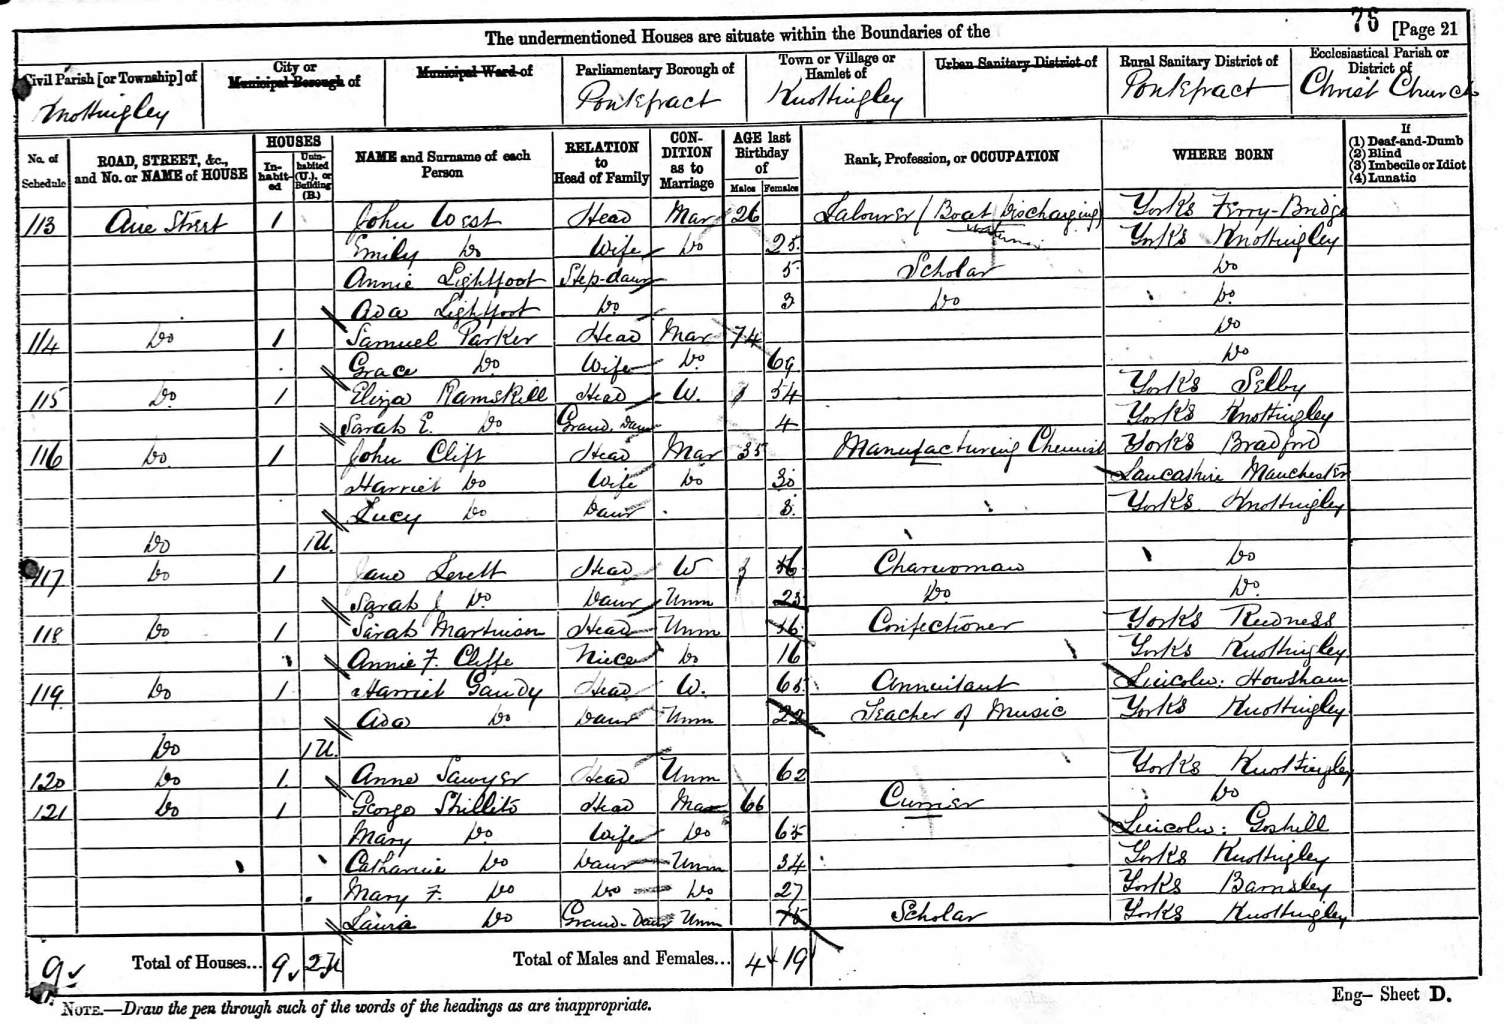 76 [Page 21
The undermentioned Houses are situate within the Boundaries of the
Civil Parish [or Township] of
Knottingley
City or Municipal Borough of
Municipal Ward of
Parliamentary Borough of
Pontefract
Town or Village or Hamlet of
Knottingley
Urban Sanitary District of
Rural Sanitary District of
Pontefract
Ecclesiastical Parish or District of
Christ Church
No. of Schedule
ROAD, STREET, &c., and No. or NAME of HOUSE
HOUSES
In-habit-ed
Unin-habited (U.), or Building (B.)
NAME and Surname of each Person
RELATION to Head of Family
CON-DITION as to Marriage
AGE last Birthday of
Males Females
Rank, Profession, or OCCUPATION
WHERE BORN
If
(1) Deaf-and-Dumb
(2) Blind
(3) Imbecile or Idiot
(4) Lunatic
113 Aire Street 1 John West Head Mar 26 Labourer (Boat Discharging) Yorks Ferry-Bridge
Emily Do Wife Do 25 Yorks Knottingley
Annie Lightfoot Step-daur 5 Scholar Do
Ada Lightfoot Do 3 Do Do
114 Do 1 Samuel Parker Head Mar 74 Do
Grace Do Wife Do 69 Do
115 Do 1 Eliza Ramskill Head W. 54 Yorks Selby
Sarah E. Do Grand-Daur 4 Yorks Knottingley
116 Do 1 John Clift Head Mar 35 Manufacturing Chemist Yorks Bradford
Harriet Do Wife Do 30 Lancashire Manchester
Lucy Do Daur 8 Yorks Knottingley
Do 1U.
117 Do 1 Jane Levett Head W Charwoman Do
Sarah J Do Daur Unm 23 Do Do
118 Do 1 Sarah Martinson Head Unm Confectioner Yorks Reedness
Annie F. Cliffe Niece Do 16 Yorks Knottingley
119 Do 1 Harriet Gandy Head W. 65 Annuitant Lincoln: Howsham
Ada Do Daur Unm 22 Teacher of Music Yorks Knottingley
Do 1U.
120 Do 1 Anne Sawyer Head Unm 62 Yorks Knottingley
121 Do 1 George Shillito Head Mar 66 Currier Do
Mary Do Wife Do 65 Lincoln: Goxhill
Catharine Do Daur Unm 34 Yorks Knottingley
Mary F. Do Do Do 27 Yorks Barnsley
Laura Do Grand-Daur Unm Scholar Yorks Knottingley
9 Total of Houses... 9 2U Total of Males and Females... 4 19
NOTE.—Draw the pen through such of the words of the headings as are inappropriate.
Eng— Sheet D.